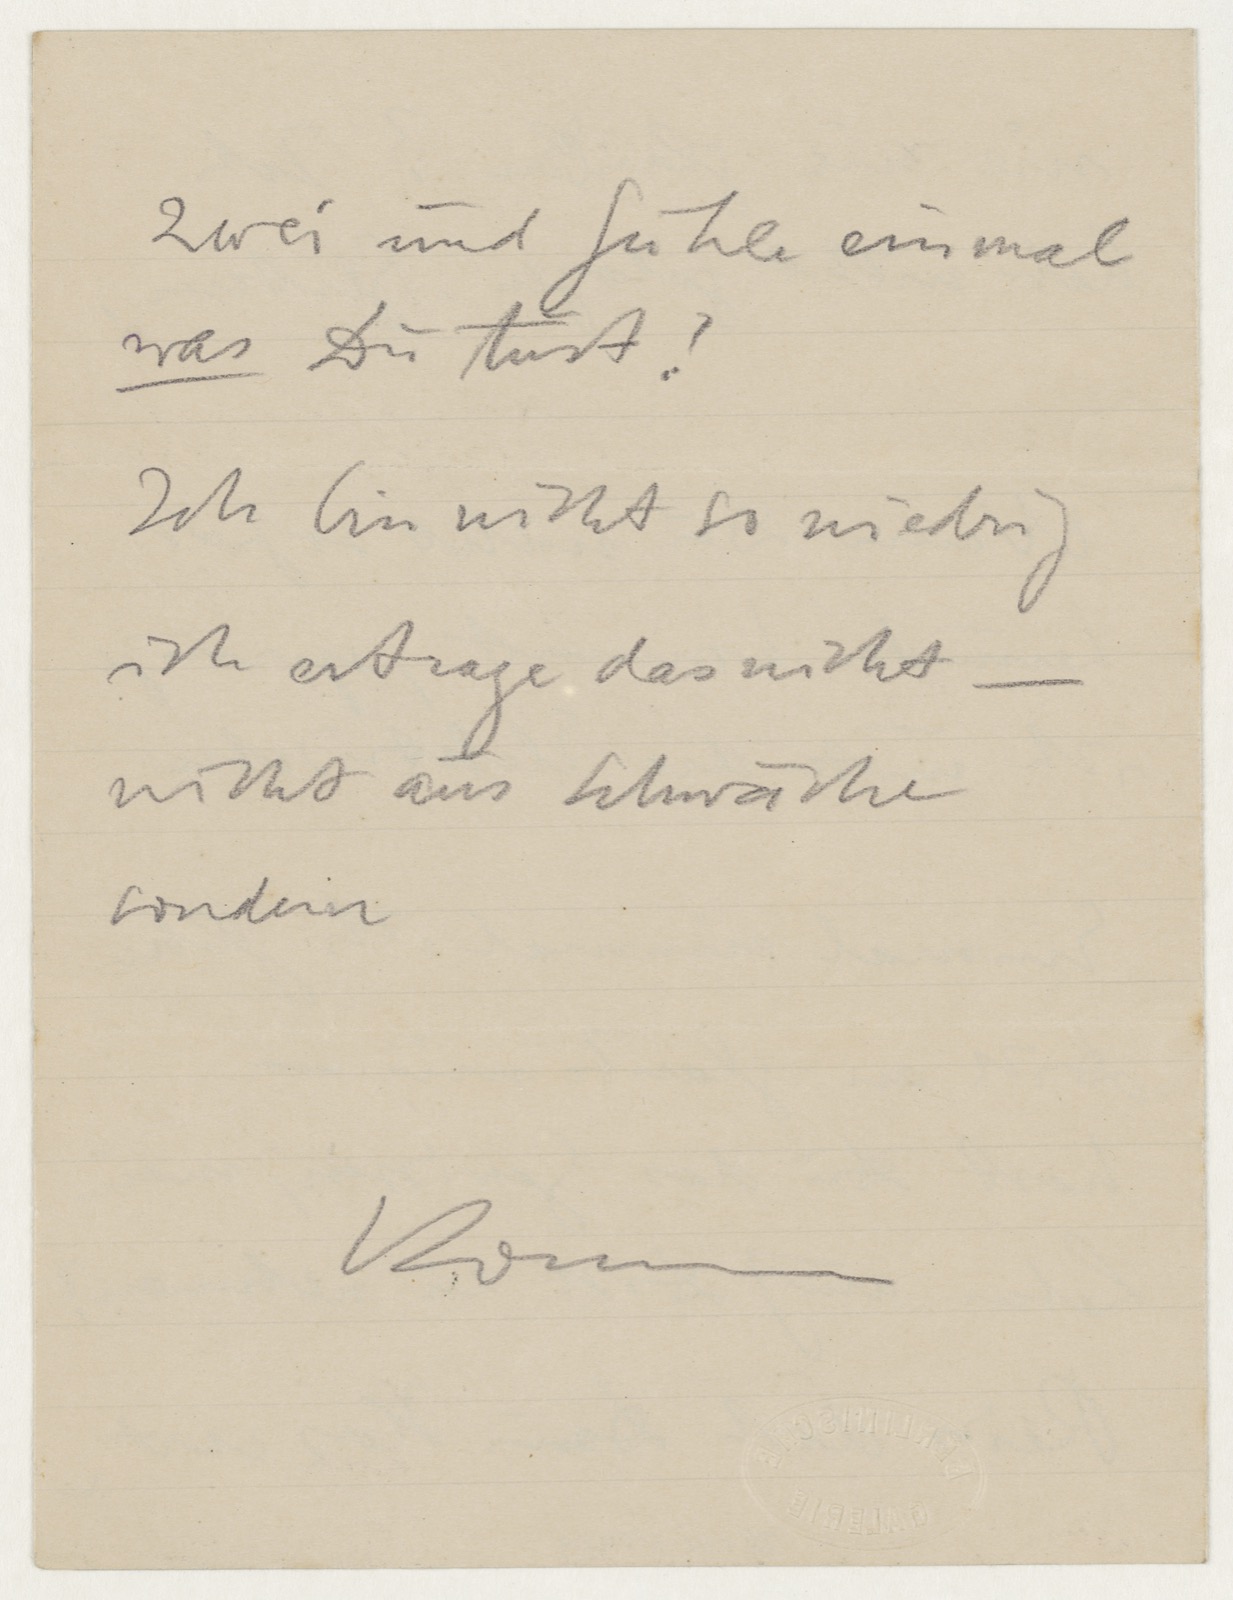 zwei und fühle einmal
was Du tust?
Ich bin nicht so niedrig
ich ertrage das nicht —
nicht aus Schwäche
sondern
BERLINISCHE
GALERIE